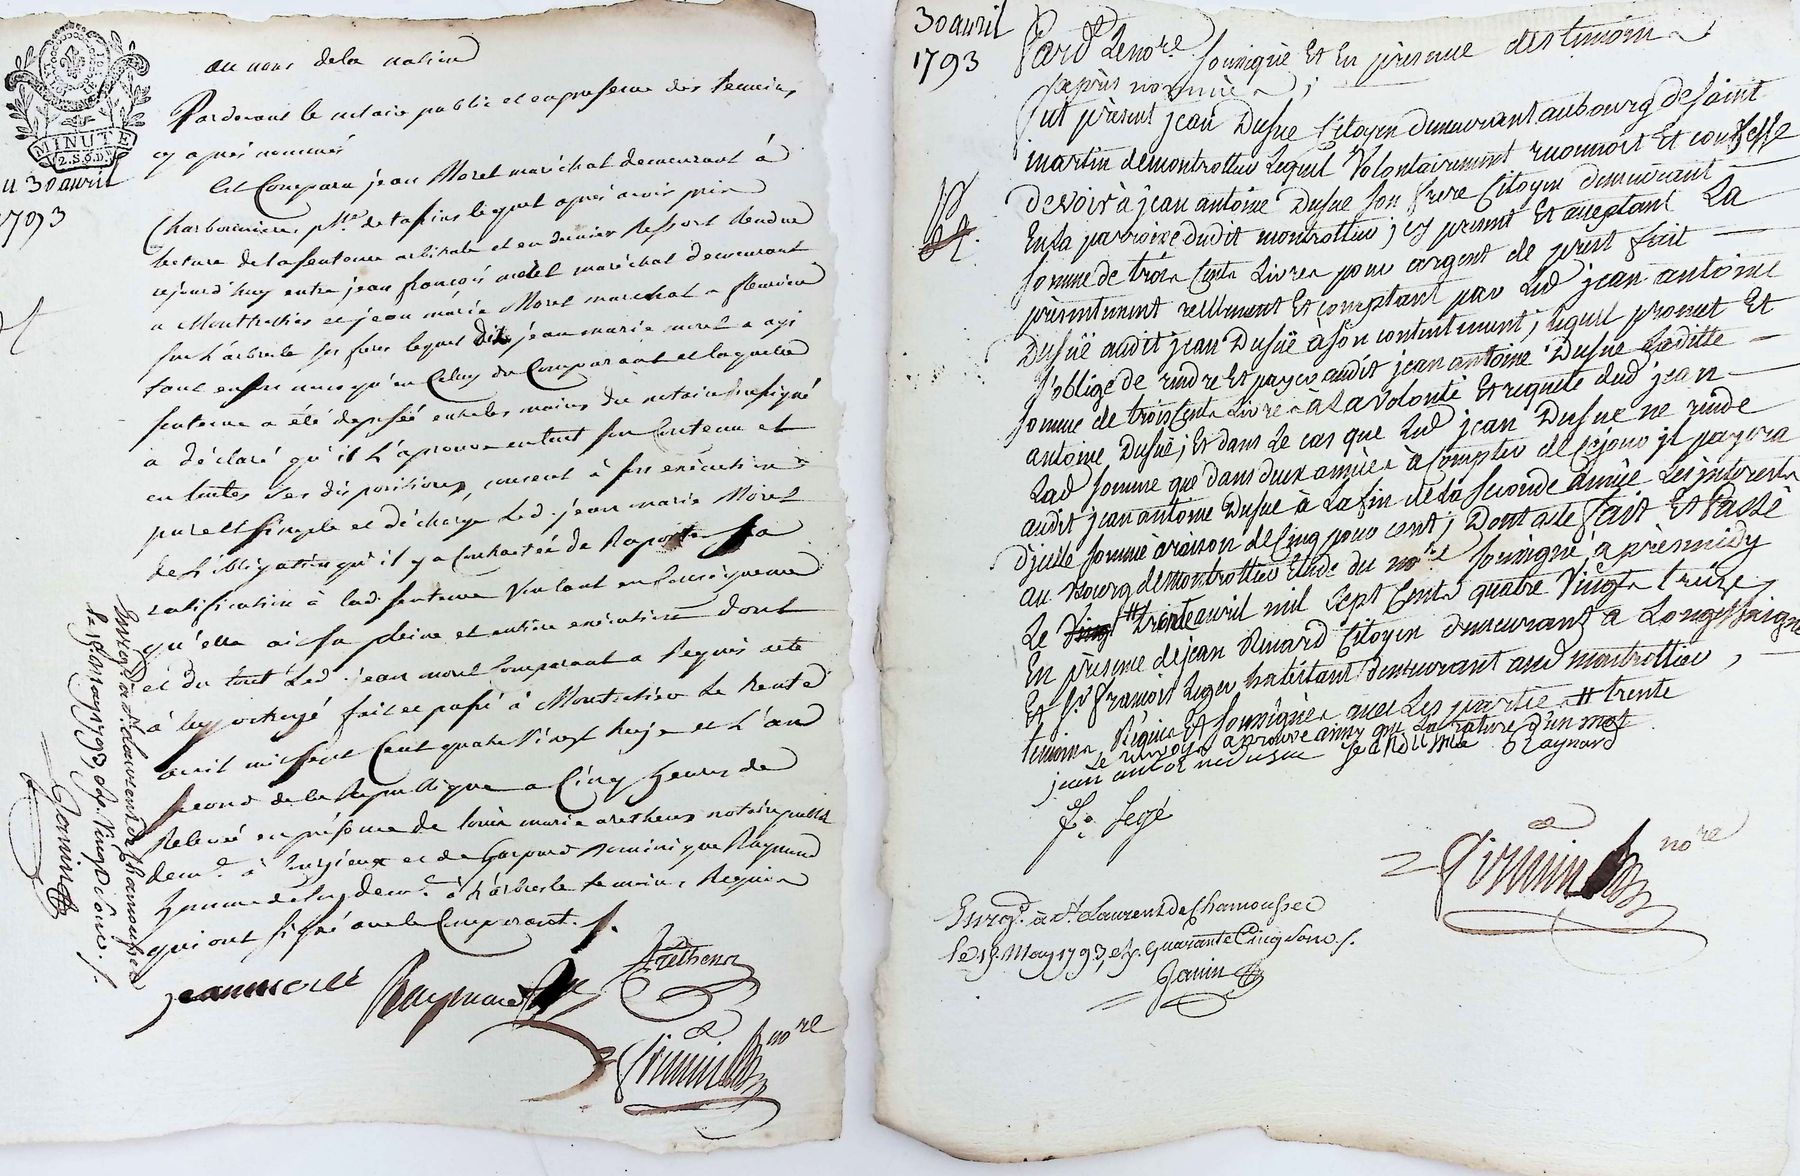 au nom de la nation
Pardevant le notaire public et en presence des temoins
cy après nommés
MINUTE
2.S.6.D.
30 avril
1793
Est Comparu jean Morel maréchal demeurant à
Charbonnieres, de tasins lequel après avoir pris
lecture de la sentence arbitrale et en dernier Ressort Rendue
cejourd'huy entre jean françois morel maréchal demeurant
a Montrottier et jean marie Morel marechal a fleurieu
sur L'arbresle ses freres lequel dit jean marie morel a agi
tant en son nom qu'en Celuy du Comparant et laquelle
sentence a été deposée entre les mains du notaire soussigné
a déclaré qu'il L'aprouve en tout son Contenu et
en toutes ses dispositions, consent à son execution
pure et simple et décharge Led. jean marie Morel
de L'obligation qu'il y a Contractée de Raporter sa
ratification à lad. sentence Voulant en Consequence
qu'elle ai sa pleine et entiere execution dont
et du tout Led. jean morel Comparant a Requis acte
à luy octroyé fait et passé à Montrottier Le trente
avril mil sept Cent quatre Vingt treize et L'an
second de la Republique a Cinq heures de
Relevée en présence de louis marie arethens notaire public
dem.t à et de Gaspard Dominique Raymond
homme de loy dem.t à L'arbresle temoins Requis
qui ont signé avec le Comparant.
jean morel Raymond Arethens
no.re
Enreg.é à S.t Laurent de Chamousset
le 15 may 1793, Vingt sous.
Janin
30 avril
1793
Pard.t Le no.re soussigné Et En présence des temoins
cy après nommés ;
fut présent jean Dusue Citoyen demeurant au bourg de saint
martin de montrottier Lequel Volontairement reconnoit Et confesse
devoir à jean antoine Dusue son frere Citoyen demeurant
En la parroisse dudit montrottier ; cy present Et acceptant La
somme de trois Cents Livres pour argent de prest fait
présentement reellement Et comptant par Led jean antoine
Dusue audit jean Dusue à son contentement ; lequel promet Et
s'oblige de rendre Et payer audit jean antoine Dusue Laditte
somme de trois Cents Livres a La Volonté Et requete dud jean
antoine Dusue ; Et dans Le cas que Led jean Dusue ne rende
Lad somme que dans deux années à Compter de ce jour il payera
audit jean antoine Dusue à La fin de la seconde année Les interests
d'icelle somme à raison de Cinq pour cent ; Dont acte fait Et Passé
au Bourg de montrottier Etude du no.re soussigné, après midy
Le # trente avril mil sept Cents quatre Vingts treize,
En présence de jean Renard Citoyen demeurant à Longessaigne
Et S.r françois Leger habitant demeurant aud montrottier,
temoins Requis Et soussignés avec Les parties # trente
Le renvoy approuvé ainsy que La rature d'un mot
jean antoine dusue jean dusue Raynard
f.s Legé
no.re
Enreg.é à S.t Laurent de Chamousset
le 15 May 1793, quarante Cinq sous.
Janin